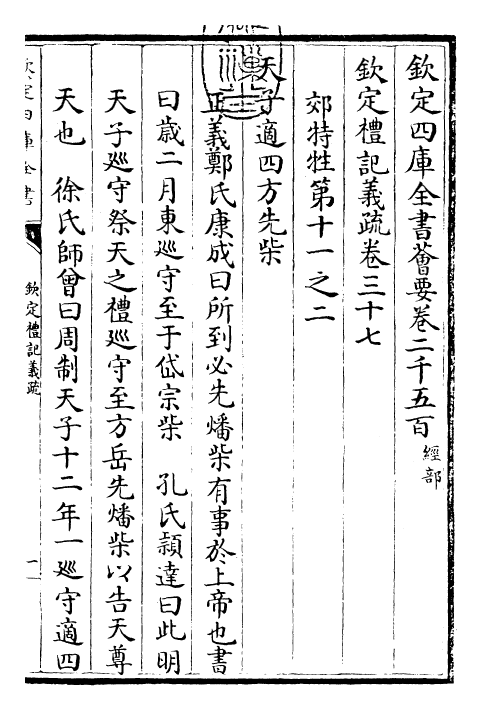 欽定四庫全書薈要卷二千五百 經部
欽定禮記義疏卷三十七
郊特牲第十一之二
天子適四方先柴
正義鄭氏康成曰所到必先燔柴有事於上帝也書
曰歲二月東廵守至于岱宗柴 孔氏穎達曰此明
天子廵守祭天之禮廵守至方岳先燔柴以告天尊
天也 徐氏師曾曰周制天子十二年一廵守適四
欽定四庫全書
欽定禮記義疏
一